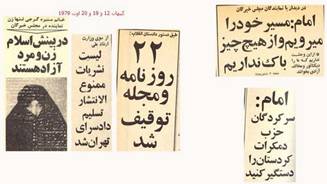 کیهان 12 و 19 و 20 اوت 1979
در دیدار با نمایندگان مجلس خبرگان
امام: مسیر خود را
میرویم و از هیچ چیز
باک نداریم
امام:
سرکردگان
حزب
دمکرات
کردستان را
دستگیر کنید
طبق دستور دادستان انقلاب:
۲۲
روزنامه
و مجله
توقیف
شد
از سوی وزارت
ارشاد ملی
لیست
نشریات
ممنوع
الانتشار
تسلیم
دادسرای
تهران شد
خانم منیره گرجی تنها زن
نماینده در مجلس خبرگان
در بینش اسلام
زن و مرد
آزاد هستند